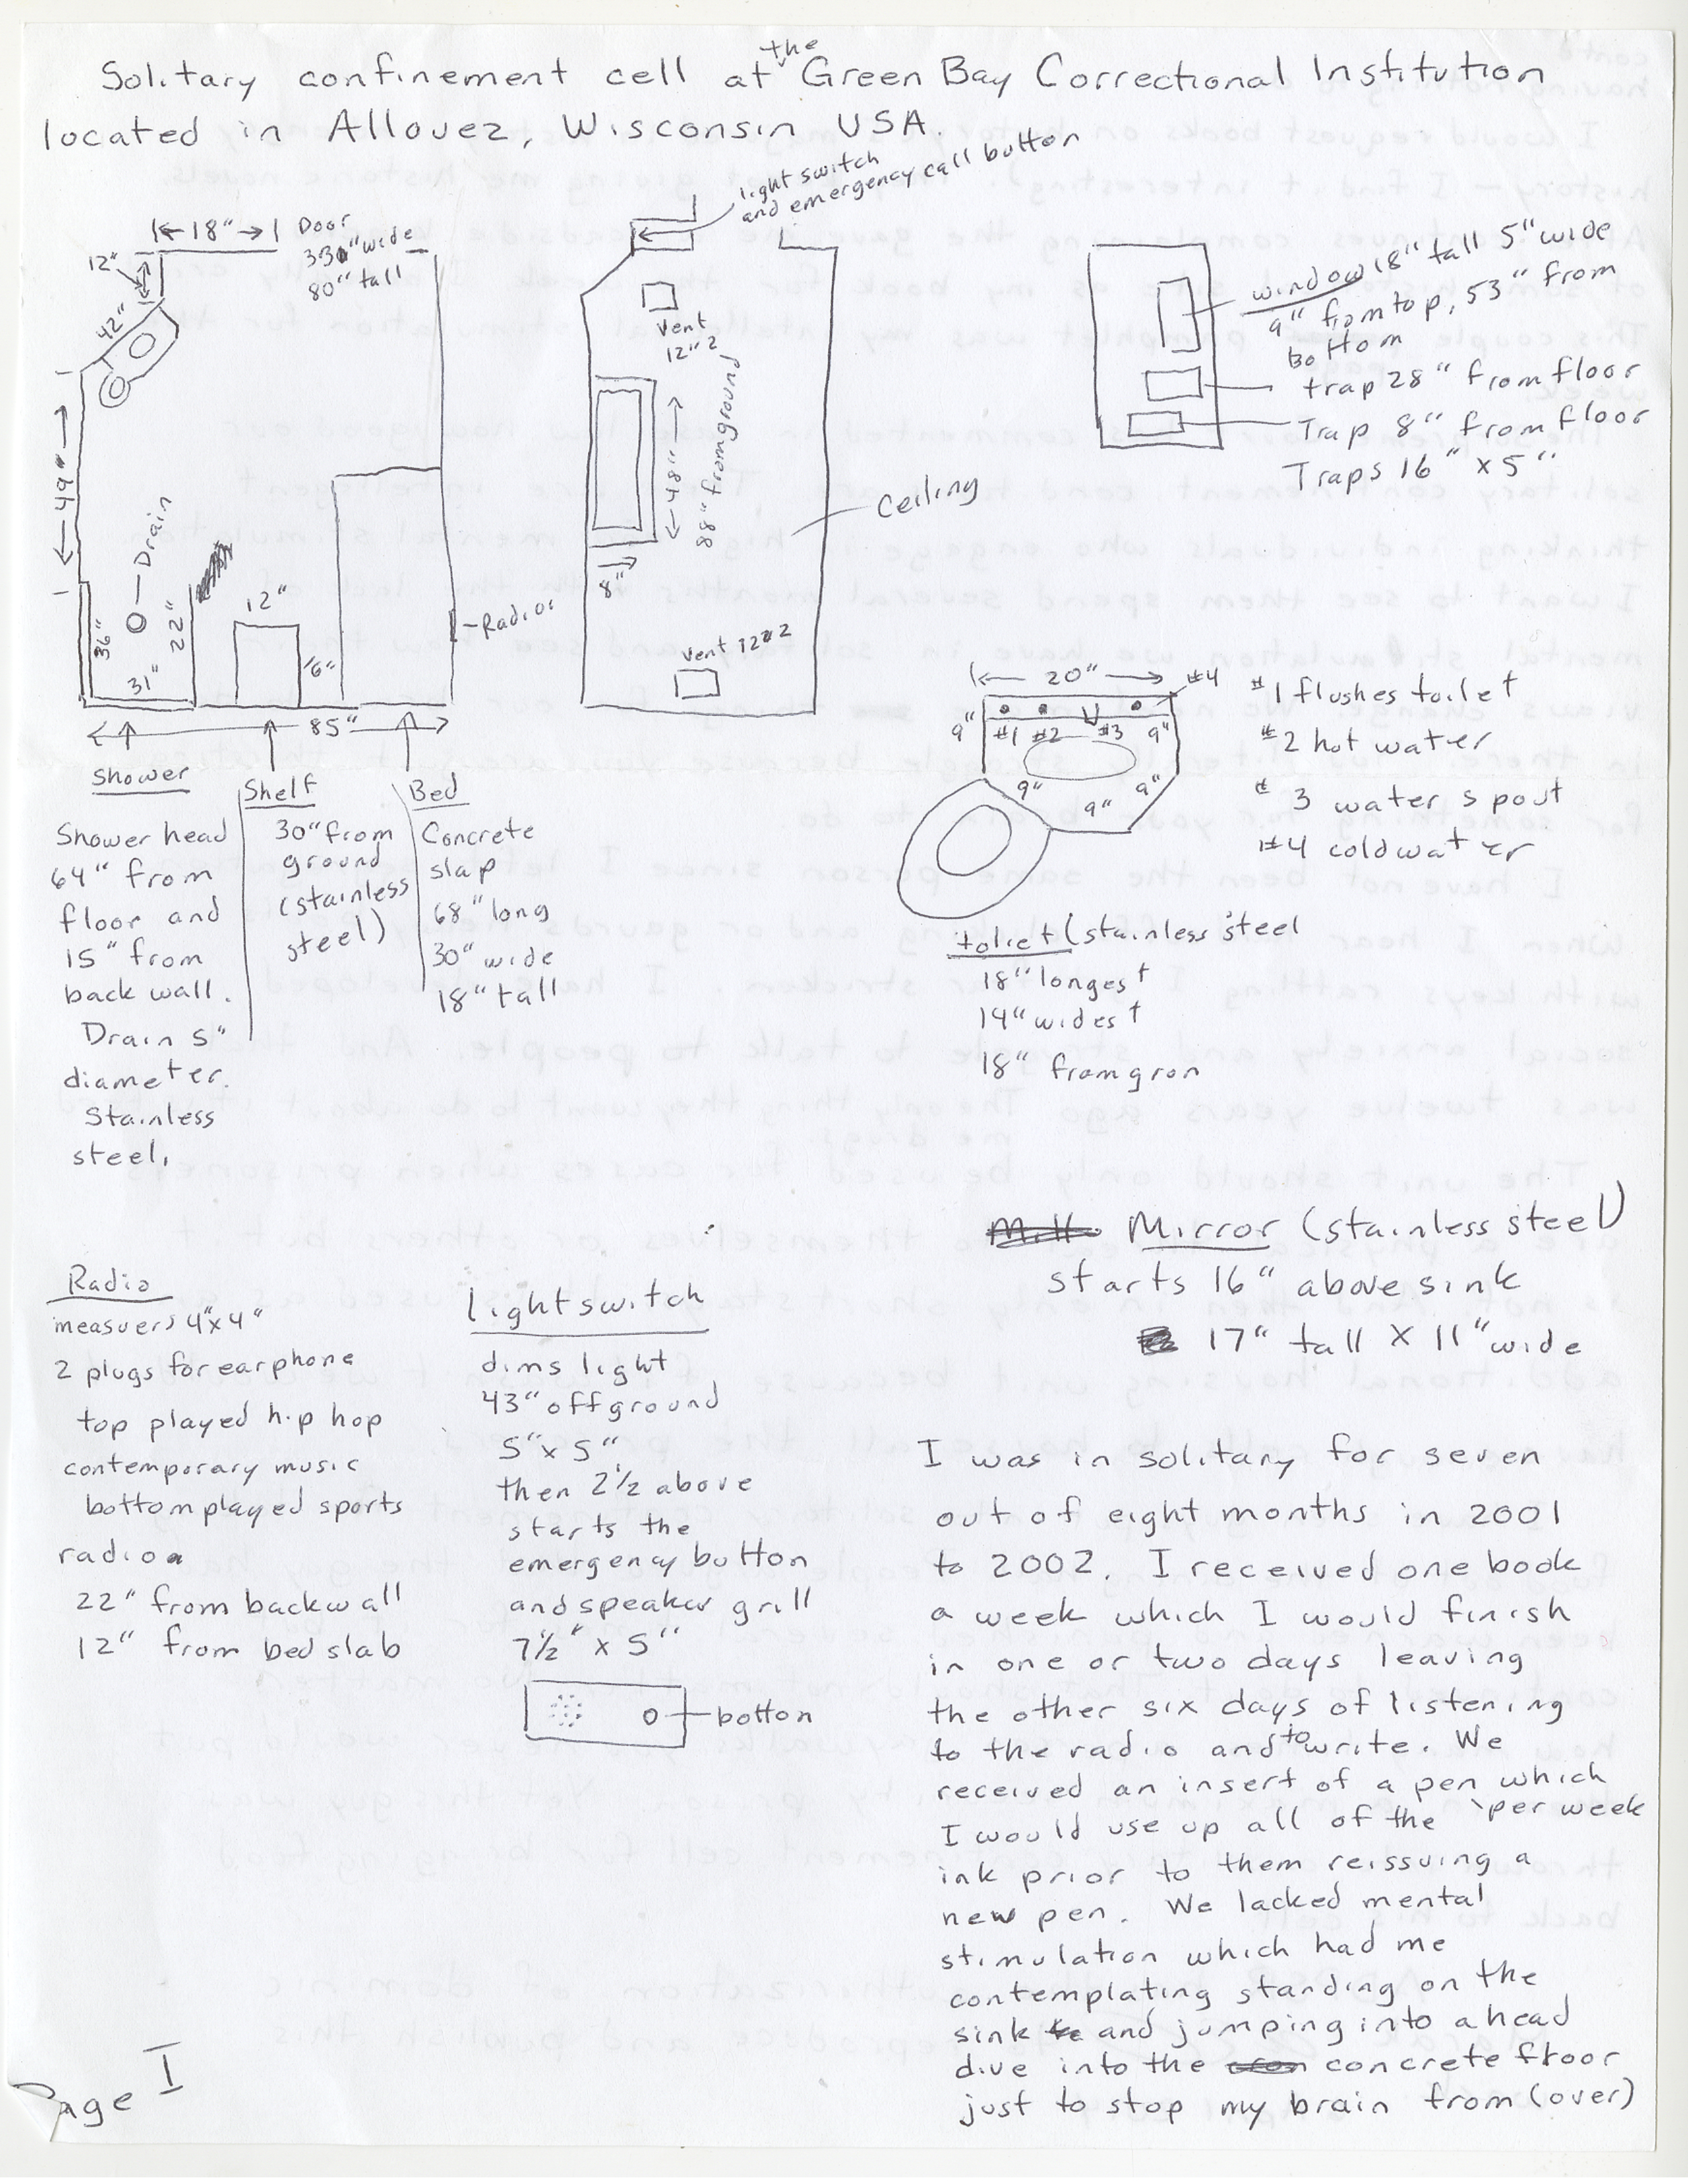 Solitary confinement cell at the Green Bay Correctional Institution
located in Allouez, Wisconsin USA.
light switch
and emergency call button
18"
Door
33" wide
80" tall
12"
42"
49"
Drain
36"
31"
22"
12"
16"
Radio
85"
Vent
12"2
48"
88" from ground
8"
Vent 12"2
Ceiling
window 18" tall 5" wide
9" from top, 53" from
Bottom
trap 28" from floor
Trap 8" from floor
Traps 16" x 5"
20"
#4
9"
#1 #2 #3 9"
9" 9" 9"
#1 flushes toilet
#2 hot water
#3 water spout
#4 cold water
toliet (stainless steel
18" longest
14" widest
18" from gron
Shower
Shower head
64" from
floor and
15" from
back wall.
Drain 5"
diameter.
Stainless
steel,
Shelf
30" from
ground
(stainless
steel)
Bed
Concrete
slap
68" long
30" wide
18" tall
Mirror (stainless steel)
starts 16" above sink
17" tall X 11" wide
Radio
measuers 4"x4"
2 plugs for earphone
top played hip hop
contemporary music
bottom played sports
radio
22" from backwall
12" from bed slab
lightswitch
dims light
43" off ground
5" x 5"
then 2½ above
starts the
emergency button
and speaker grill
7½" x 5"
botton
I was in solitary for seven
out of eight months in 2001
to 2002. I received one book
a week which I would finish
in one or two days leaving
the other six days of listening
to the radio and to write. We
received an insert of a pen which
I would use up all of the per week
ink prior to them reissuing a
new pen. We lacked mental
stimulation which had me
contemplating standing on the
sink and jumping into a head
dive into the concrete floor
just to stop my brain from (over)
Page I